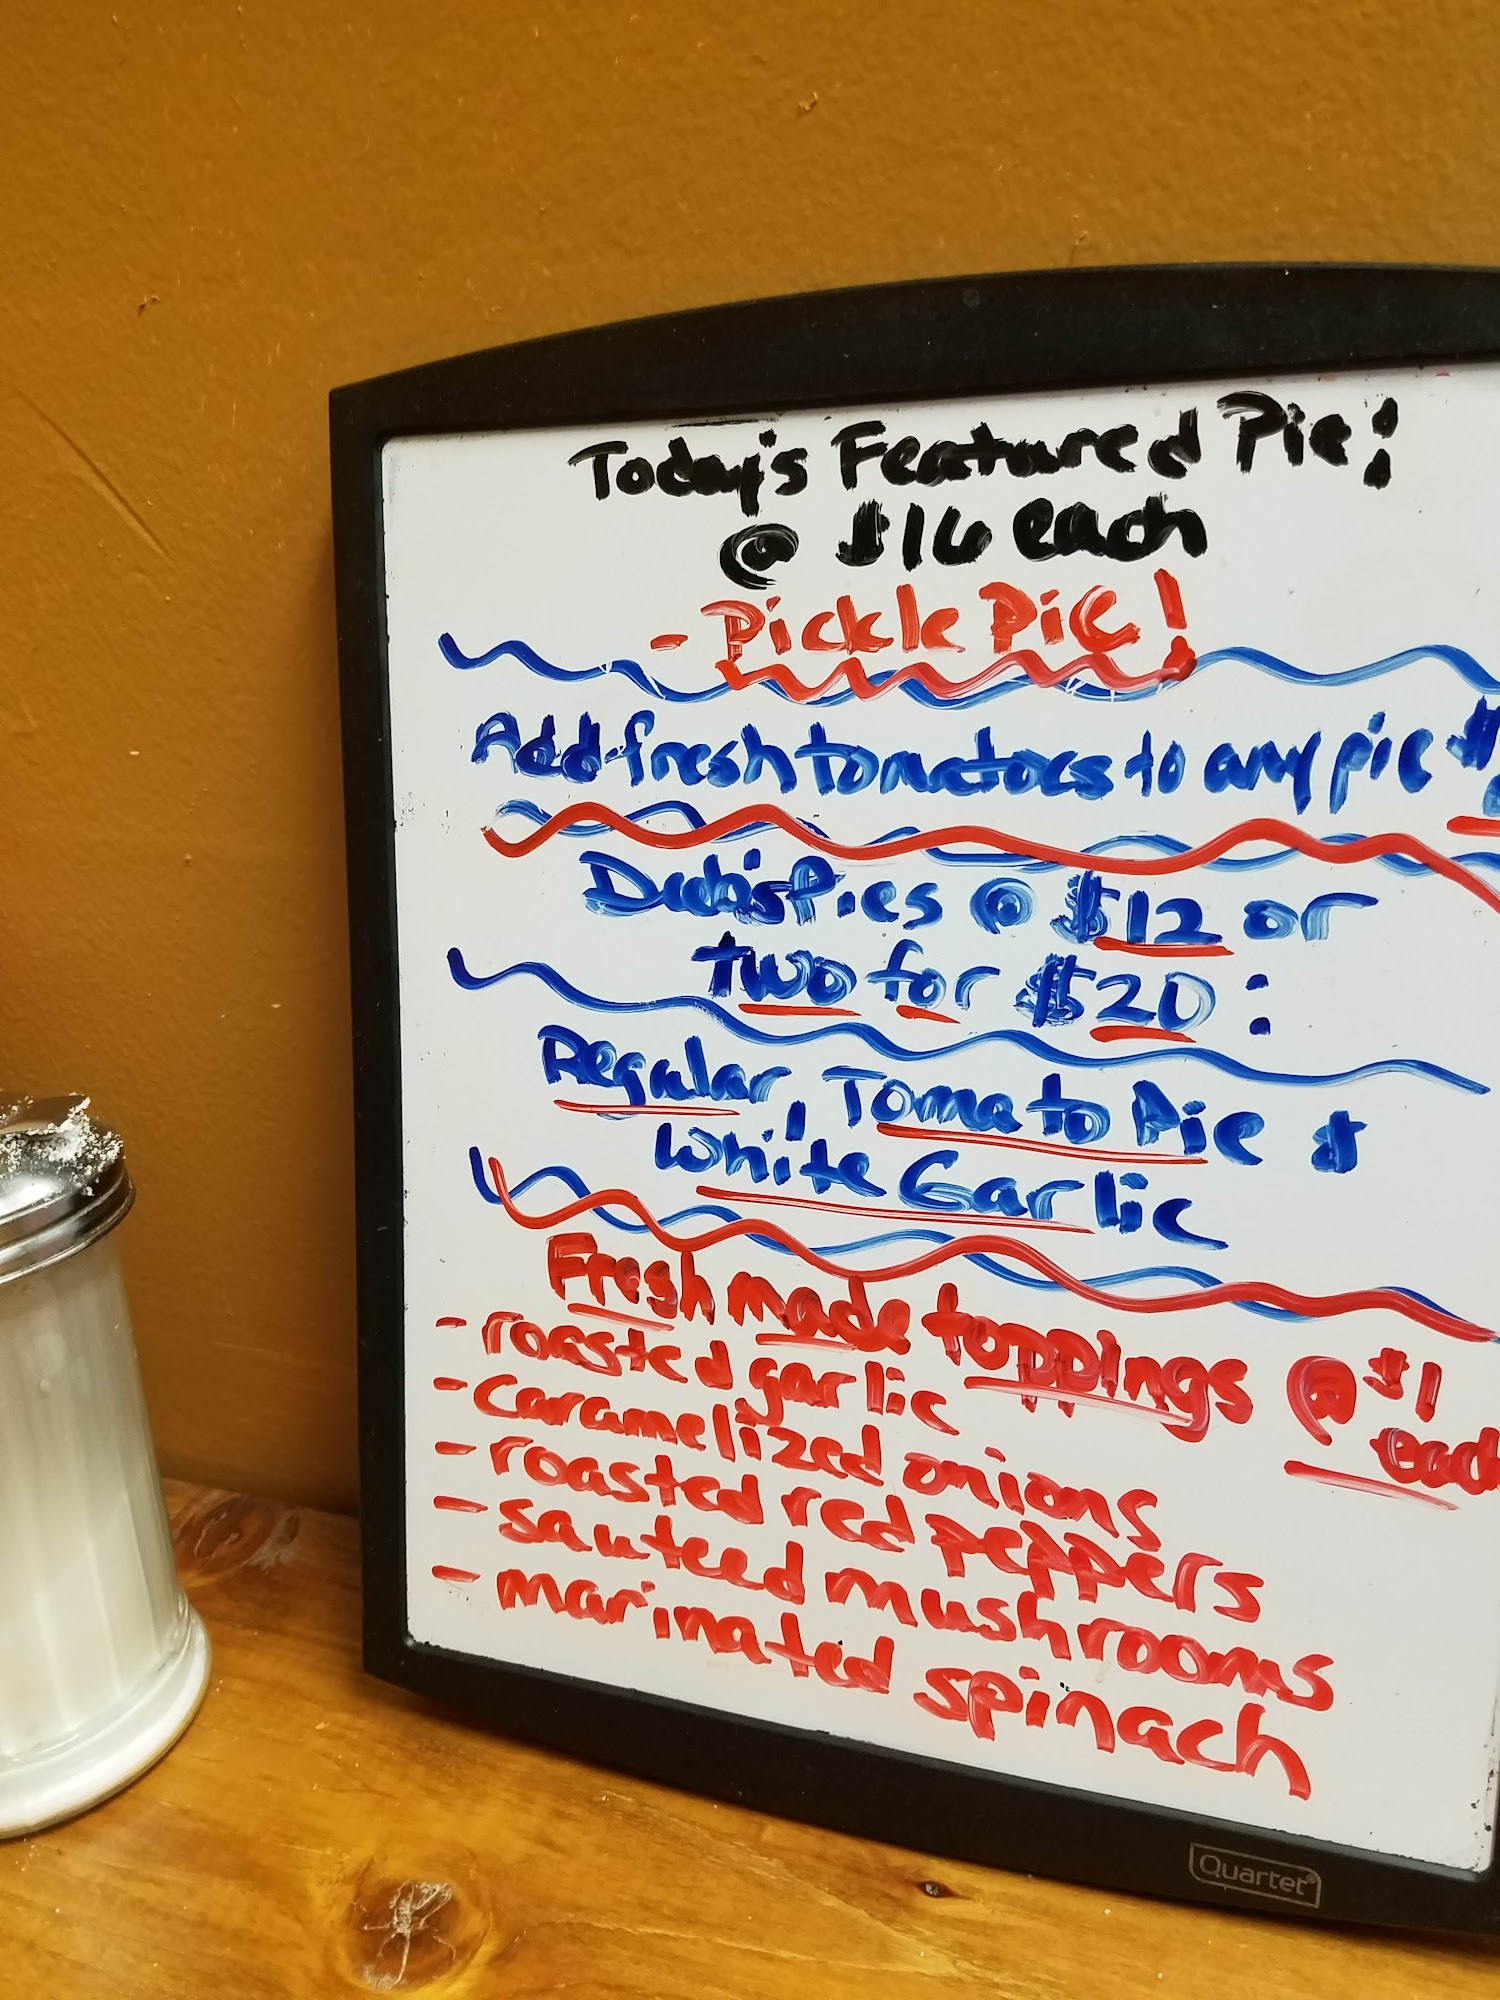 Today's Featured Pie:
@ $16 each
- Pickle Pie!
Add fresh tomatoes to any pie
Dub's Pies @ $12 or
two for $20:
Regular, Tomato Pie &
White Garlic
Fresh made toppings @ $1
each
- roasted garlic
- caramelized onions
- roasted red peppers
- sauteed mushrooms
- marinated spinach
Quartet®